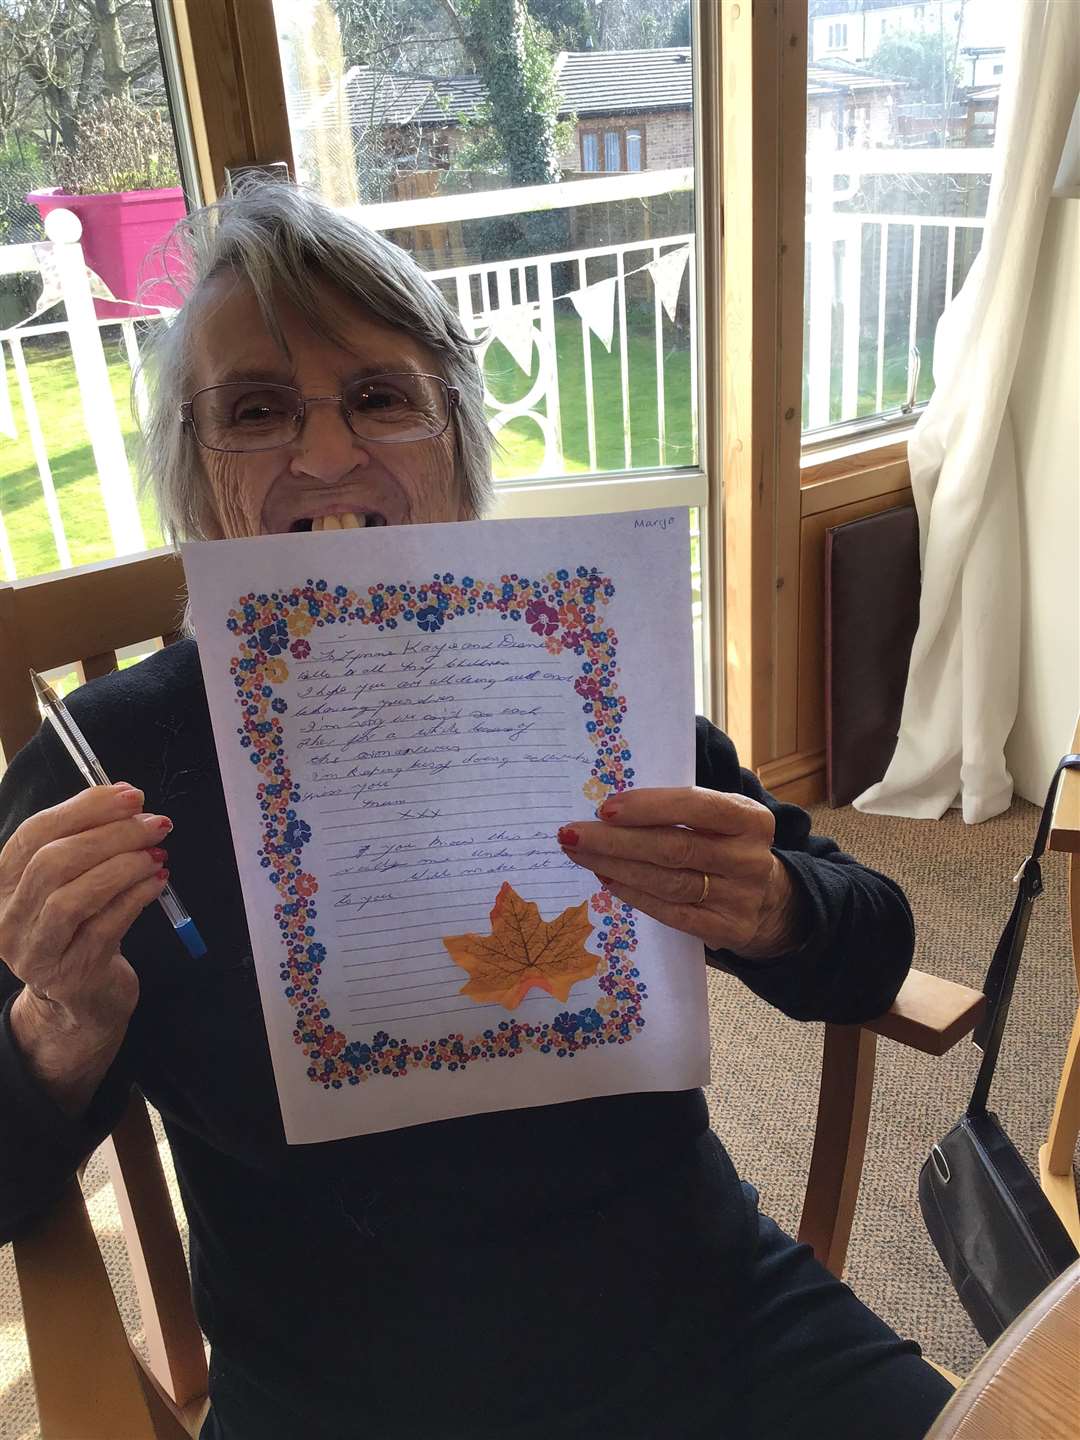 Margo
To Lynne Kaye and Diane
Hello to all my children
I hope you are all doing well and
behaving yourselves
I'm sorry we can't see each
other for a while because of
the coronavirus
I'm keeping busy doing
miss you
Mum
xxx
you know this
me. Under
Will make it up
to you